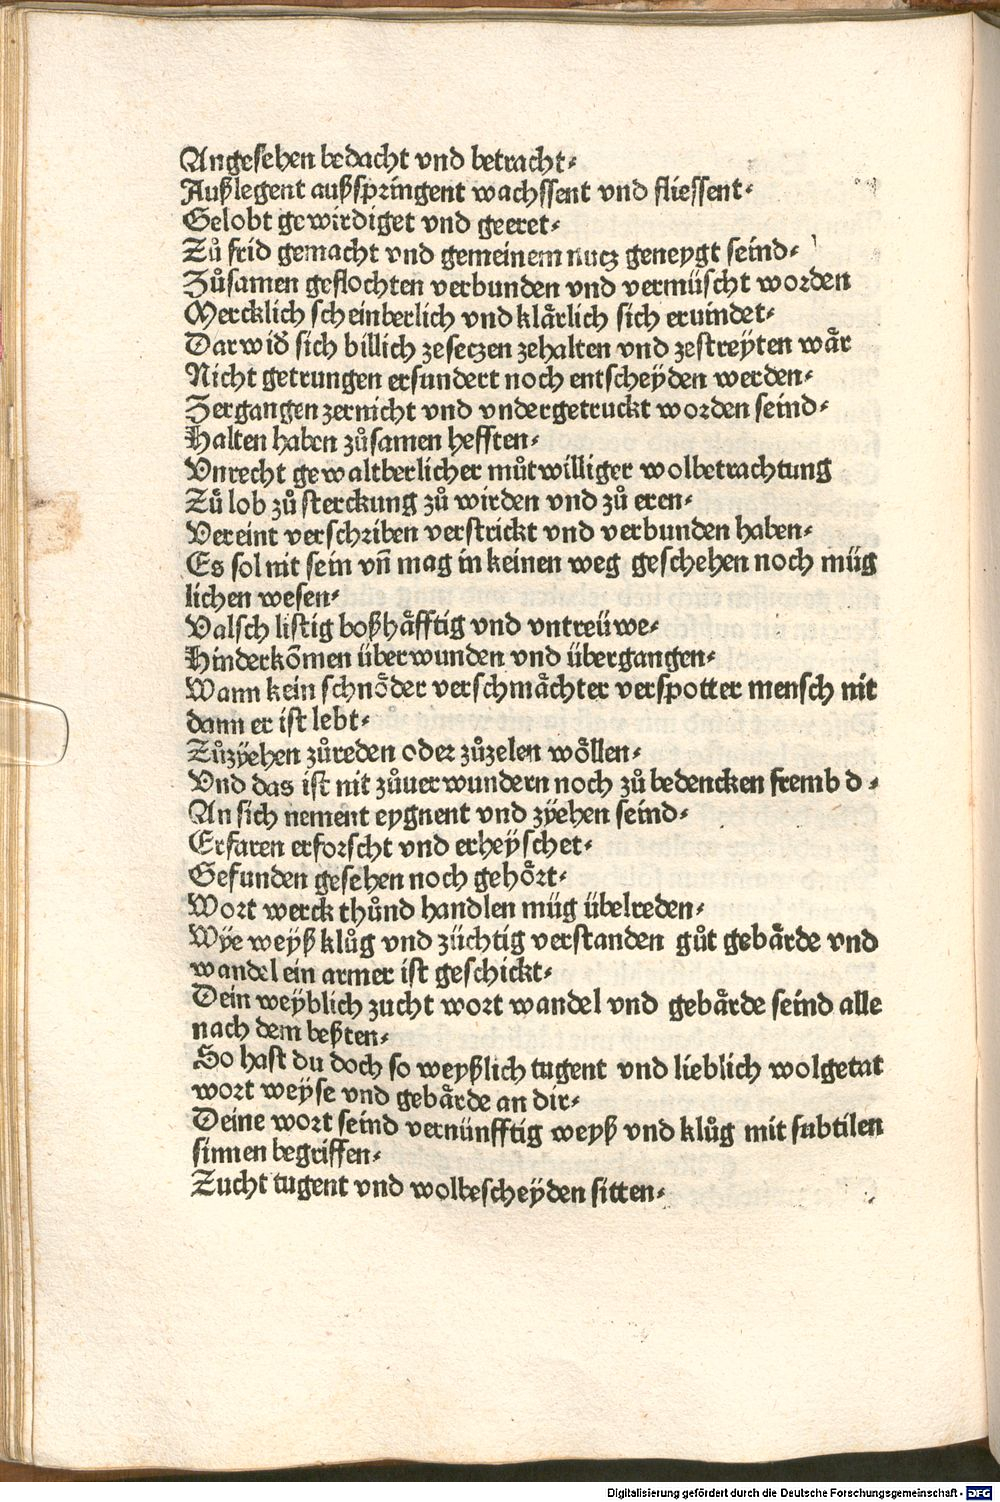 Angesehen bedacht vnd betracht⸗
Außlegent außspringent wachssent vnd fliessent⸗
Gelobt gewirdiget vnd geeret⸗
Zů frid gemacht vnd gemeinem nucz geneygt seind⸗
Zůsamen geflochten verbunden vnd vermüscht worden
Mercklich scheinberlich vnd klårlich sich eruindet⸗
Darwid̕ sich billich zesetzen zehalten vnd zestreÿten wår
Nicht getrungen ersundert noch entscheÿden werden⸗
Zergangen zernicht vnd vndergetruckt worden seind⸗
Halten haben zůsamen hefften⸗
Vnrecht gewaltberlicher můtwilliger wolbetrachtung
Zů lob zů sterckung zů wirden vnd zů eren⸗
Vereint verschriben verstrickt vnd verbunden haben⸗
Es sol nit sein vñ mag in keinen weg geschehen noch müg
lichen wesen⸗
Valsch listig boßhåfftig vnd vntreüwe⸗
Hinderkõmen überwunden vnd übergangen⸗
Wann kein schnöder verschmåchter verspotter mensch nit
dann er ist lebt⸗
Zůzÿehen zůreden oder zůzelen wöllen⸗
Vnd das ist nit zůuerwundern noch zů bedencken frembd⸗
An sich nement eygnent vnd zÿehen seind⸗
Erfaren erforscht vnd erheÿschet⸗
Gefunden gesehen noch gehört⸗
Wort werck thůnd handlen müg übelreden⸗
Wÿe weÿß klůg vnd züchtig verstanden gůt gebårde vnd
wandel ein armer ist geschickt⸗
Dein weÿblich zucht wort wandel vnd gebårde seind alle
nach dem beßten⸗
So hast du doch so weyßlich tugent vnd lieblich wolgetat
wort weyse vnd gebårde an dir⸗
Deine wort seind vernünfftig weyß vnd klůg mit subtilen
sinnen begriffen⸗
Zucht tugent vnd wolbescheÿden sitten⸗
Digitalisierung gefördert durch die Deutsche Forschungsgemeinschaft - DFG